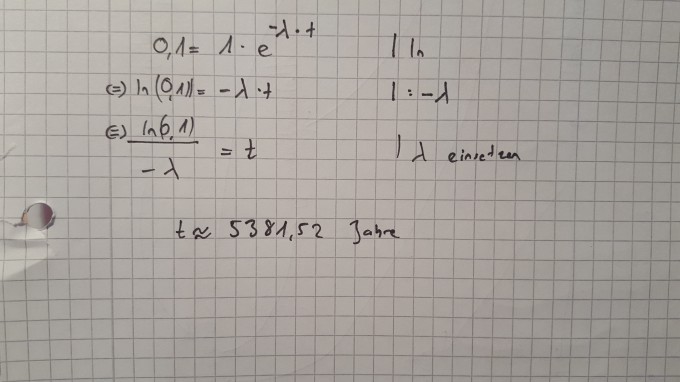 0,1 = 1 · e^(-λ·t) | ln
(=) ln(0,1) = -λ·t | : -λ
(=) ln(0,1) / -λ = t | λ einsetzen
t ≈ 5381,52 Jahre